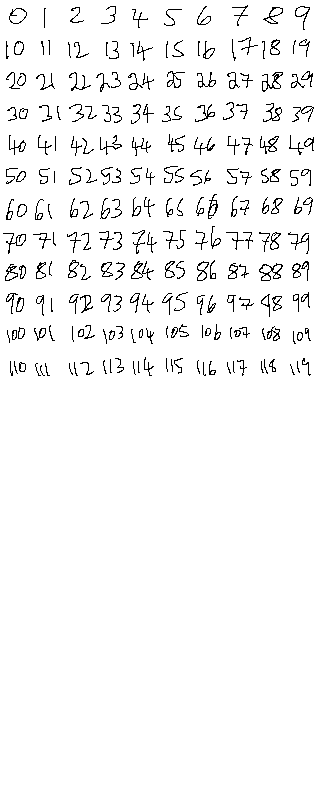 0 1 2 3 4 5 6 7 8 9
10 11 12 13 14 15 16 17 18 19
20 21 22 23 24 25 26 27 28 29
30 31 32 33 34 35 36 37 38 39
40 41 42 43 44 45 46 47 48 49
50 51 52 53 54 55 56 57 58 59
60 61 62 63 64 65 66 67 68 69
70 71 72 73 74 75 76 77 78 79
80 81 82 83 84 85 86 87 88 89
90 91 92 93 94 95 96 97 98 99
100 101 102 103 104 105 106 107 108 109
110 111 112 113 114 115 116 117 118 119